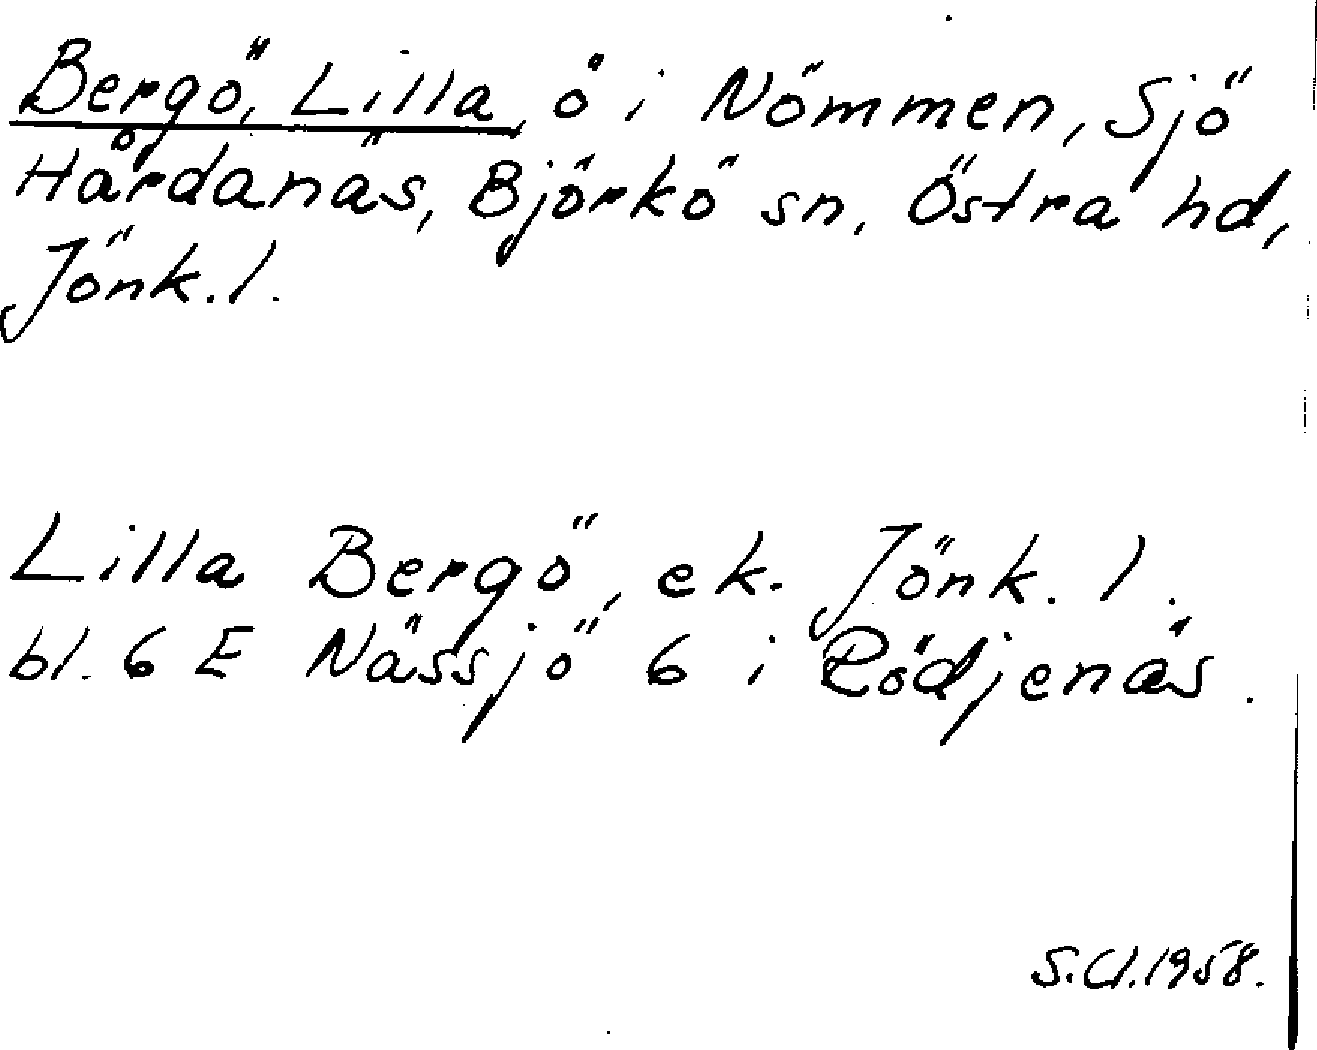 Bergö, Lilla, ö i Nömmen, Sjö
Hårdanäs, Björkö sn, Östra hd,
Jönk. l.
Lilla Bergö, ek. Jönk. l.
bl. 6 E Nässjö 6 i Rödjenäs.
S.Cl.1958.